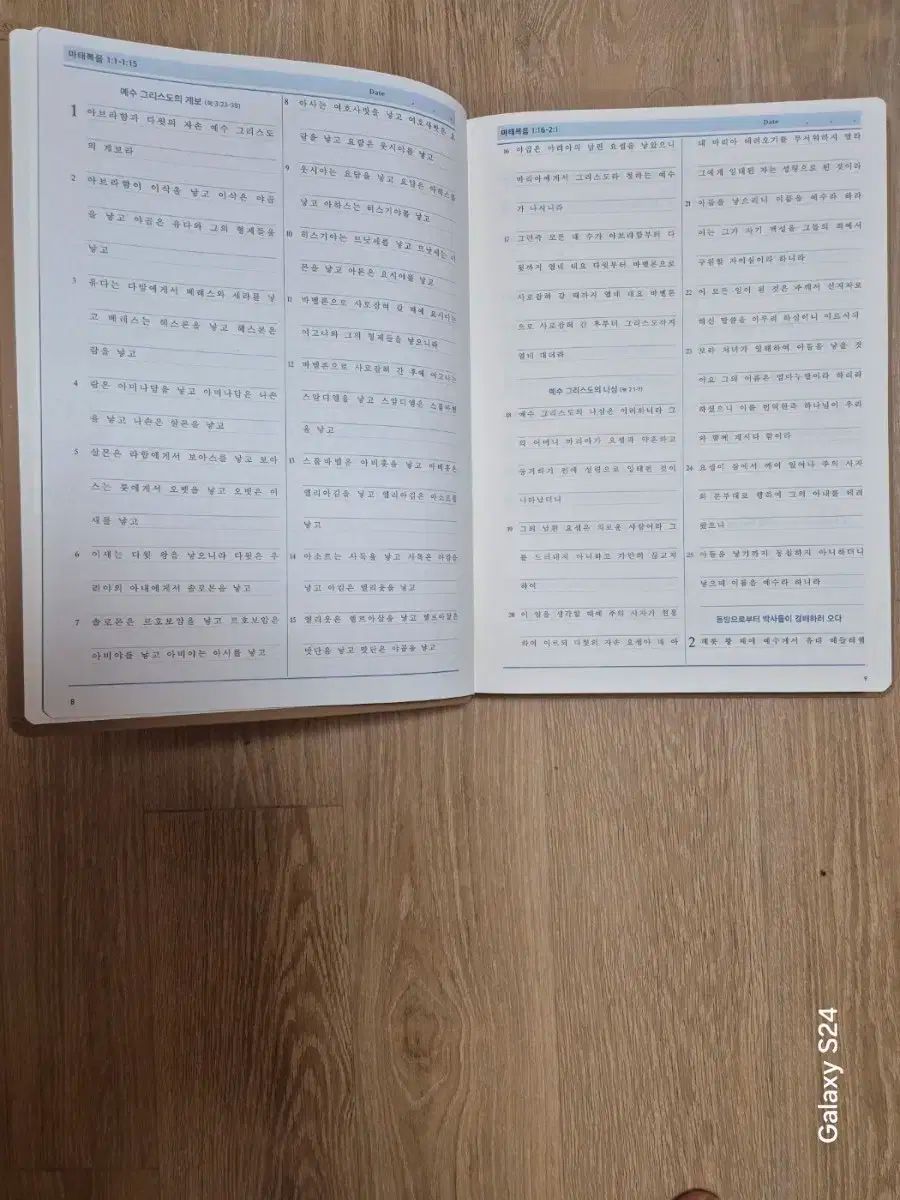 마태복음 1:1-1:15
Date
예수 그리스도의 계보 (눅 3:23-38)
1 아브라함과 다윗의 자손 예수 그리스도
의 계보라
2 아브라함이 이삭을 낳고 이삭은 야곱
을 낳고 야곱은 유다와 그의 형제들을
낳고
3 유다는 다말에게서 베레스와 세라를 낳
고 베레스는 헤스론을 낳고 헤스론은
람을 낳고
4 람은 아미나답을 낳고 아미나답은 나손
을 낳고 나손은 살몬을 낳고
5 살몬은 라합에게서 보아스를 낳고 보아
스는 룻에게서 오벳을 낳고 오벳은 이
새를 낳고
6 이새는 다윗 왕을 낳으니라 다윗은 우
리야의 아내에게서 솔로몬을 낳고
7 솔로몬은 르호보암을 낳고 르호보암은
아비야를 낳고 아비야는 아사를 낳고
8 아사는 여호사밧을 낳고 여호사밧은 요
람을 낳고 요람은 웃시야를 낳고
9 웃시야는 요담을 낳고 요담은 아하스를
낳고 아하스는 히스기야를 낳고
10 히스기야는 므낫세를 낳고 므낫세는 아
몬을 낳고 아몬은 요시야를 낳고
11 바벨론으로 사로잡혀 갈 때에 요시야는
여고냐와 그의 형제들을 낳으니라
12 바벨론으로 사로잡혀 간 후에 여고냐는
스알디엘을 낳고 스알디엘은 스룹바벨
을 낳고
13 스룹바벨은 아비훗을 낳고 아비훗은
엘리아김을 낳고 엘리아김은 아소르를
낳고
14 아소르는 사독을 낳고 사독은 아킴을
낳고 아킴은 엘리웃을 낳고
15 엘리웃은 엘르아살을 낳고 엘르아살은
맛단을 낳고 맛단은 야곱을 낳고
8
마태복음 1:16-2:1
Date
16 야곱은 마리아의 남편 요셉을 낳았으니
마리아에게서 그리스도라 칭하는 예수
가 나시니라
17 그런즉 모든 대 수가 아브라함부터 다
윗까지 열네 대요 다윗부터 바벨론으로
사로잡혀 갈 때까지 열네 대요 바벨론
으로 사로잡혀 간 후부터 그리스도까지
열네 대더라
예수 그리스도의 나심 (눅 2:1-7)
18 예수 그리스도의 나심은 이러하니라 그
의 어머니 마리아가 요셉과 약혼하고
동거하기 전에 성령으로 잉태된 것이
나타났더니
19 그의 남편 요셉은 의로운 사람이라 그
를 드러내지 아니하고 가만히 끊고자
하여
20 이 일을 생각할 때에 주의 사자가 현몽
하여 이르되 다윗의 자손 요셉아 네 아
내 마리아 데려오기를 무서워하지 말라
그에게 잉태된 자는 성령으로 된 것이라
21 아들을 낳으리니 이름을 예수라 하라
이는 그가 자기 백성을 그들의 죄에서
구원할 자이심이라 하니라
22 이 모든 일이 된 것은 주께서 선지자로
하신 말씀을 이루려 하심이니 이르시되
23 보라 처녀가 잉태하여 아들을 낳을 것
이요 그의 이름은 임마누엘이라 하리라
하셨으니 이를 번역한즉 하나님이 우리
와 함께 계시다 함이라
24 요셉이 잠에서 깨어 일어나 주의 사자
의 분부대로 행하여 그의 아내를 데려
왔으나
25 아들을 낳기까지 동침하지 아니하더니
낳으매 이름을 예수라 하니라
동방으로부터 박사들이 경배하러 오다
2 헤롯 왕 때에 예수께서 유대 베들레헴
9
Galaxy S24